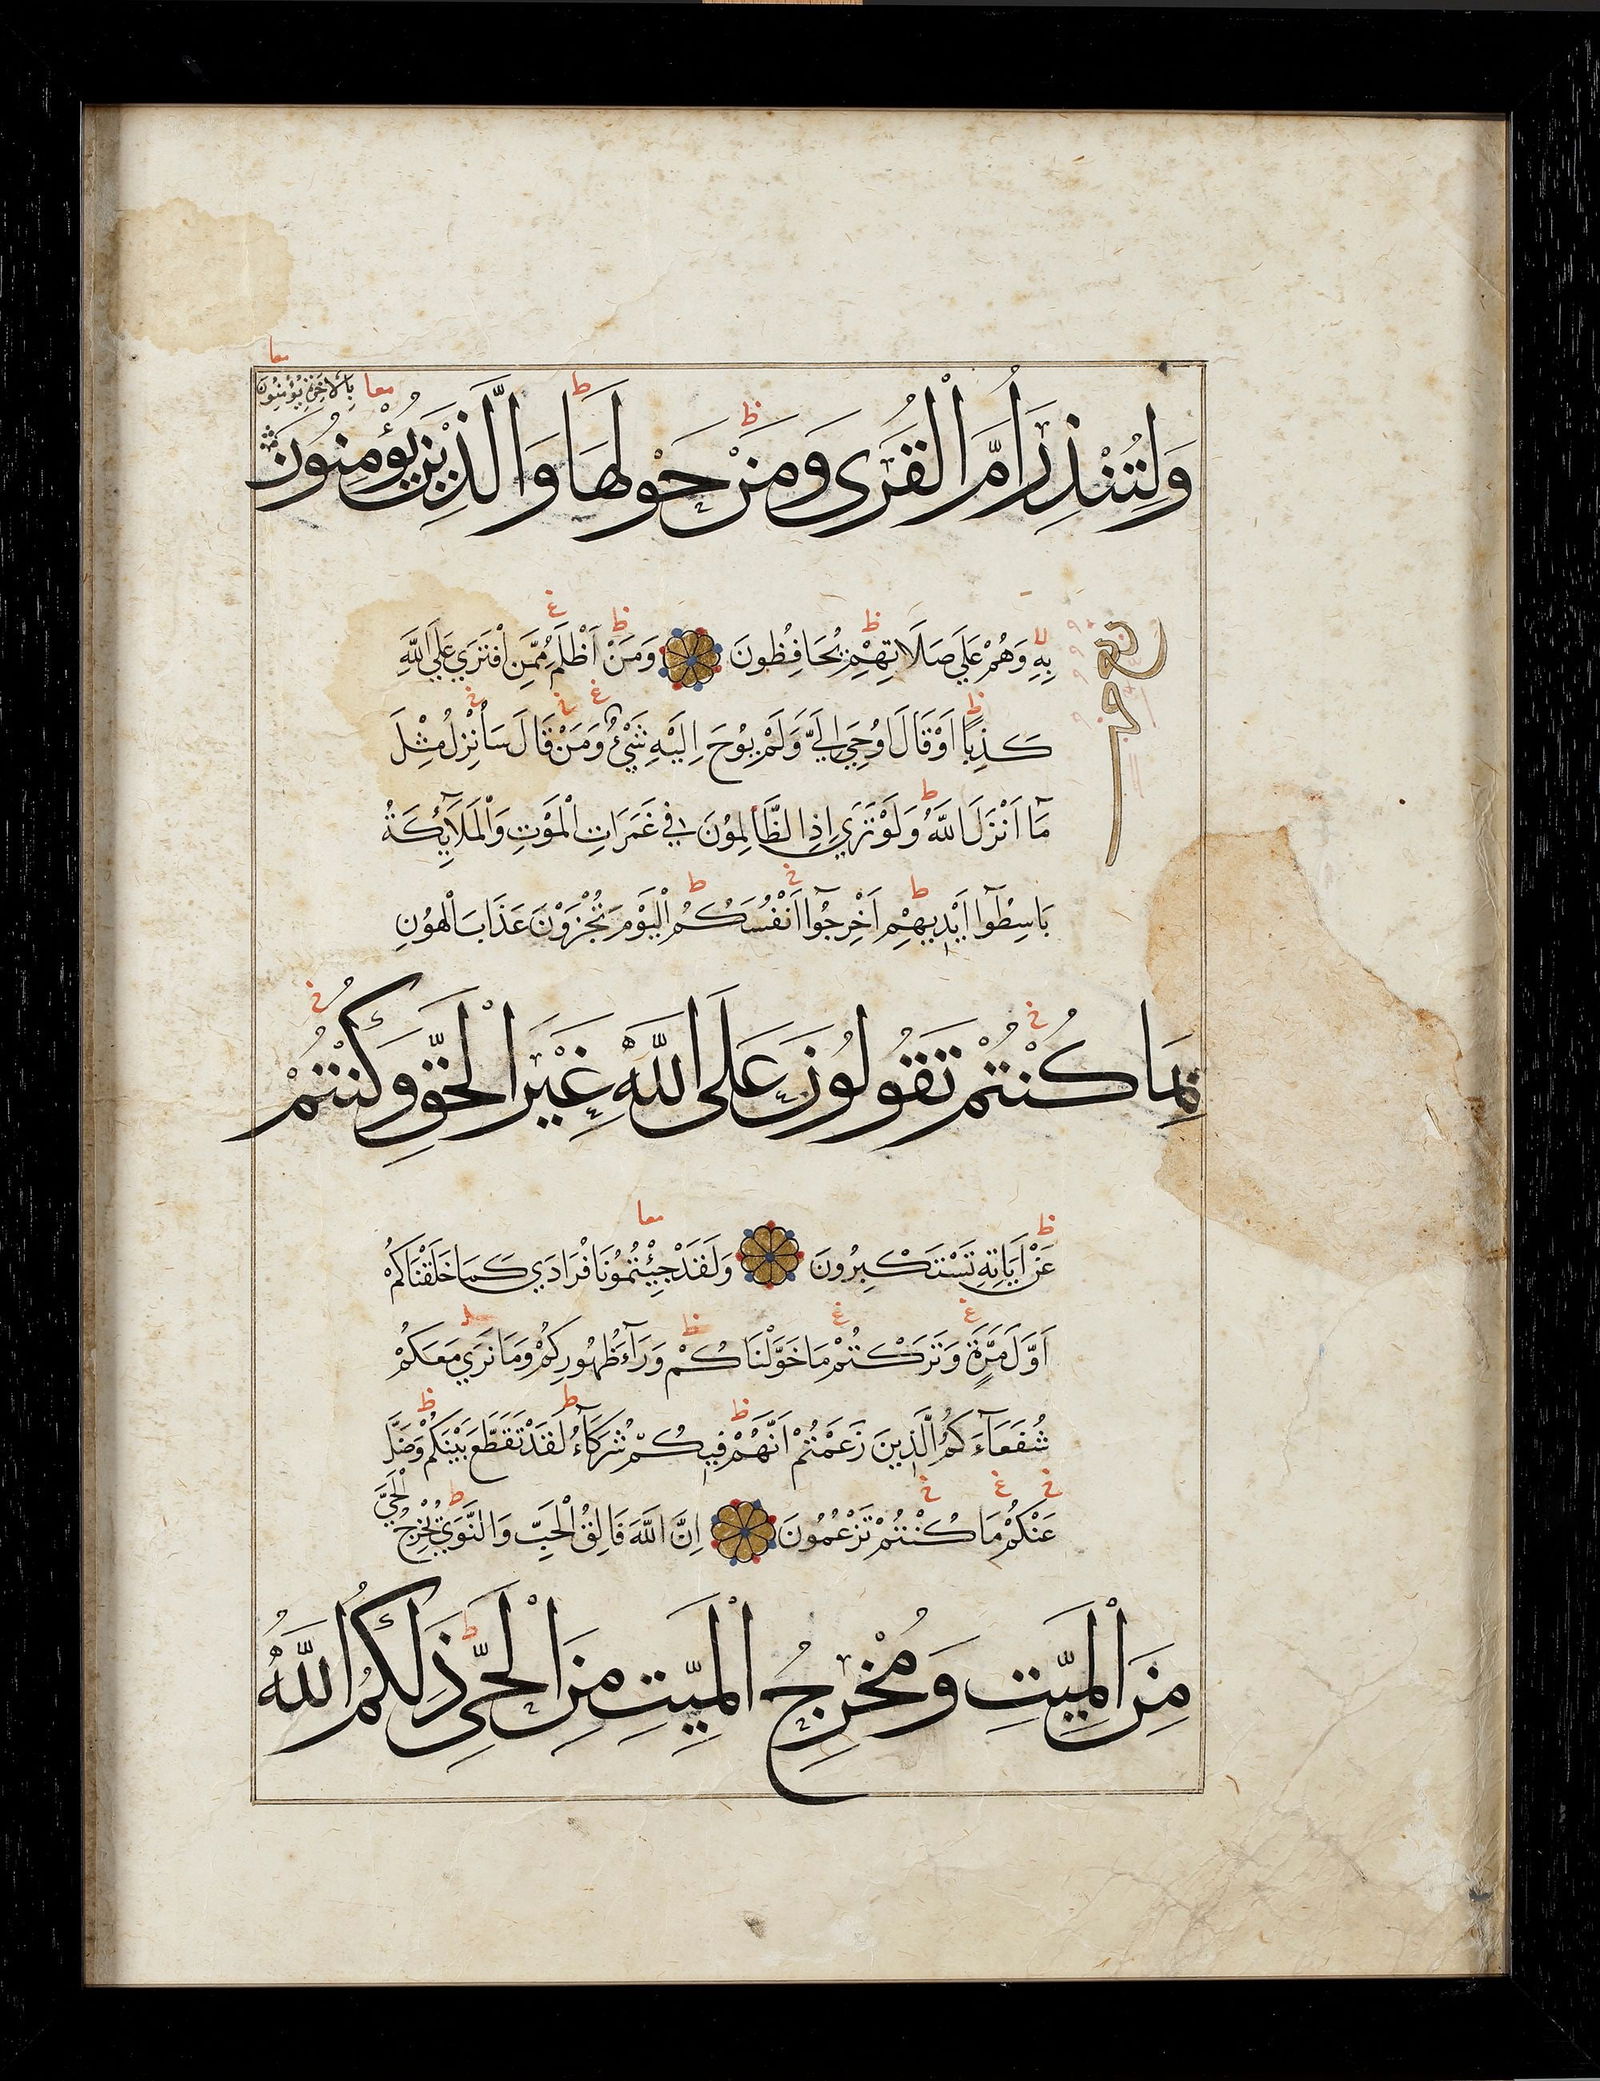 بِالْاٰخِرَةِ يُؤْمِنُونَ
وَلِتُنْذِرَ اُمَّ الْقُرَى وَمَنْ حَوْلَهَا وَالَّذِينَ يُؤْمِنُونَ
بِهِ وَهُمْ عَلَى صَلَاتِهِمْ يُحَافِظُونَ وَمَنْ اَظْلَمُ مِمَّنِ افْتَرَي عَلَي اللَّهِ
كَذِبًا اَوْ قَالَ اُوحِيَ اِلَيَّ وَلَمْ يُوحَ اِلَيْهِ شَيْءٌ وَمَنْ قَالَ سَاُنْزِلُ مِثْلَ
مَآ اَنْزَلَ اللَّهُ وَلَوْ تَرَي اِذِ الظَّالِمُونَ فِي غَمَرَاتِ الْمَوْتِ وَالْمَلَآئِكَةُ
بَاسِطُوآ اَيْدِيهِمْ اَخْرِجُوآ اَنْفُسَكُمُ الْيَوْمَ تُجْزَوْنَ عَذَابَ الْهُونِ
بِمَا كُنْتُمْ تَقُولُونَ عَلَى اللَّهِ غَيْرَ الْحَقِّ وَكُنْتُمْ
عَنْ اٰيَاتِهِ تَسْتَكْبِرُونَ وَلَقَدْ جِئْتُمُونَا فُرَادَي كَمَا خَلَقْنَاكُمْ
اَوَّلَ مَرَّةٍ وَتَرَكْتُمْ مَا خَوَّلْنَاكُمْ وَرَآءَ ظُهُورِكُمْ وَمَا نَرَي مَعَكُمْ
شُفَعَآءَكُمُ الَّذِينَ زَعَمْتُمْ اَنَّهُمْ فِيكُمْ شُرَكَآءُ لَقَدْ تَقَطَّعَ بَيْنَكُمْ وَضَلَّ
عَنْكُمْ مَا كُنْتُمْ تَزْعُمُونَ اِنَّ اللَّهَ فَالِقُ الْحَبِّ وَالنَّوَي يُخْرِجُ الْحَيَّ
مِنَ الْمَيِّتِ وَمُخْرِجُ الْمَيِّتِ مِنَ الْحَيِّ ذَلِكُمُ اللَّهُ